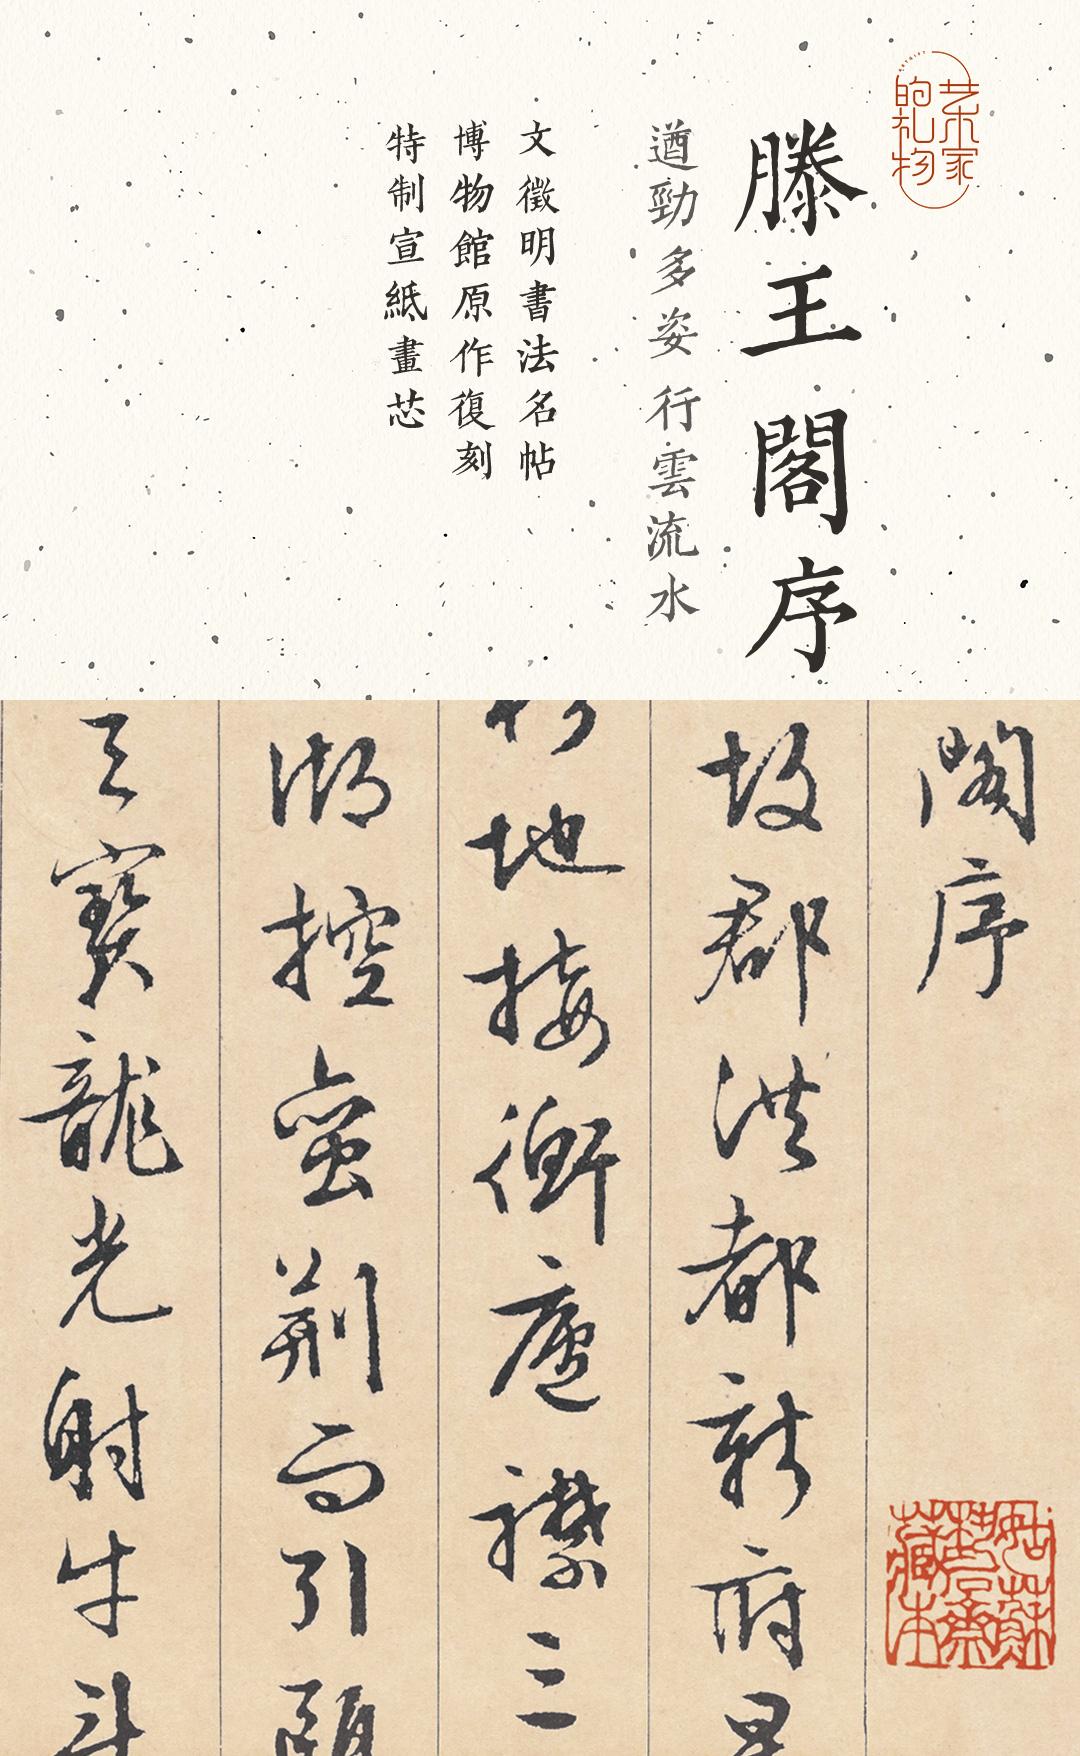 艺术家
的礼物
滕王閣序
遒勁多姿 行雲流水
文徵明書法名帖
博物館原作復刻
特制宣紙畫芯
閣序
故郡洪都新府星
地接衡廬襟三
湖控蠻荆而引甌
天寶龍光射牛斗
姑蘇
藏本